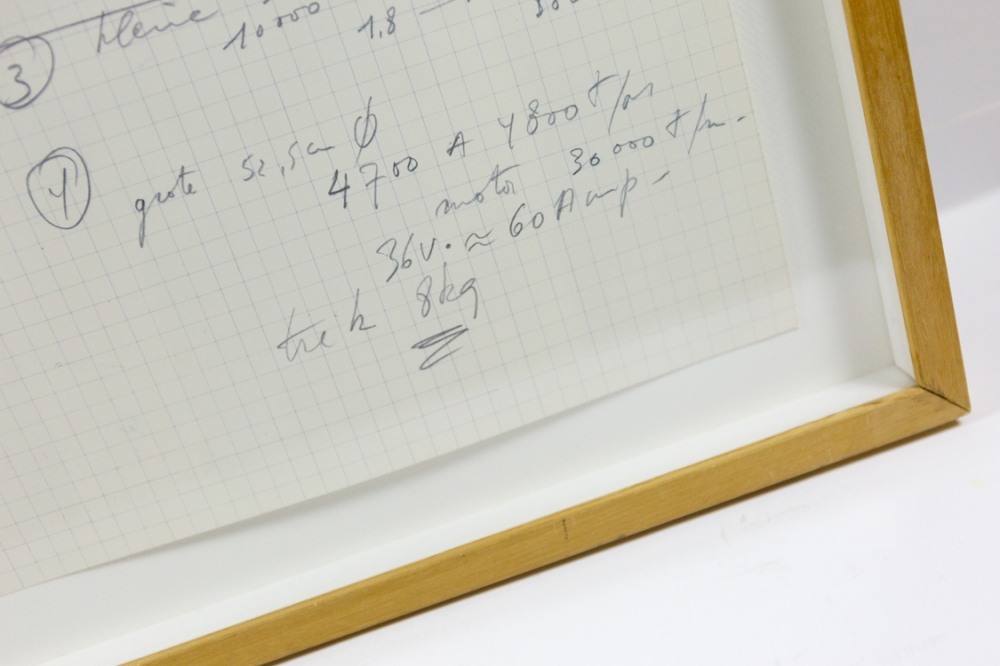 ③ kleine 10000 1,8 —
④ grote 52,5cm ϕ
4700 A 4800 t/m
motor 30000 t/m.
36v. ≈ 60 Amp -
trek 8kg